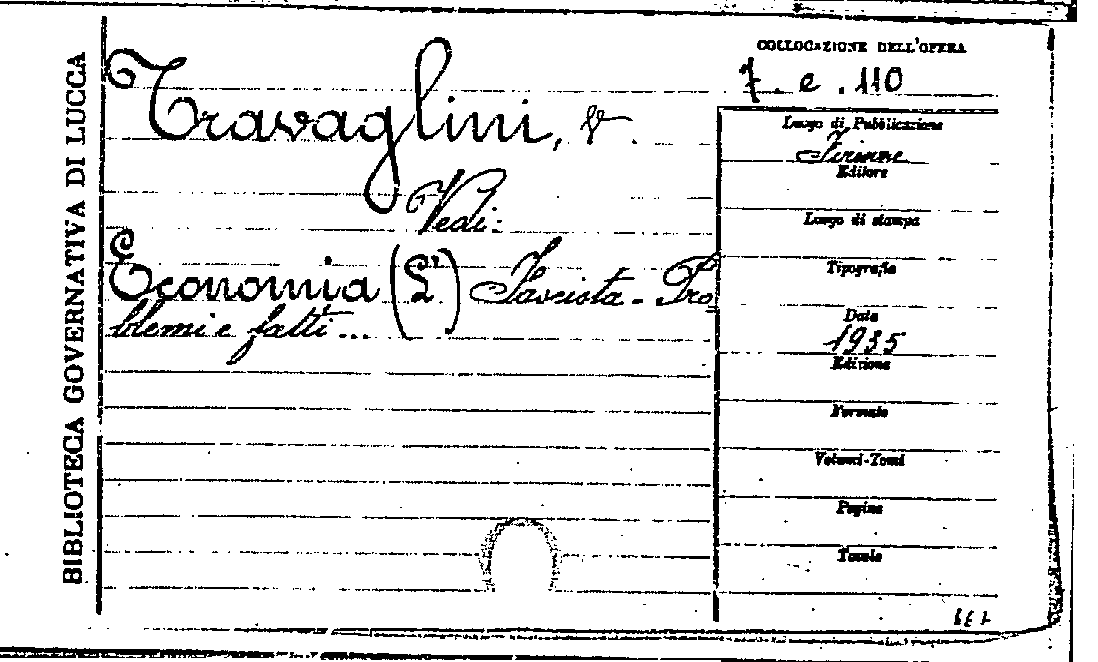 BIBLIOTECA GOVERNATIVA DI LUCCA
Travaglini, V.
Vedi:
Economia (L') Fascista - Pro
blemi e fatti...
COLLOCAZIONE DELL'OPERA
7. e. 110
Luogo di Pubblicazione
Firenze
Editore
Luogo di stampa
Tipografia
Data
1935
Edizione
Formato
Volumi-Tomi
Pagine
Tavole